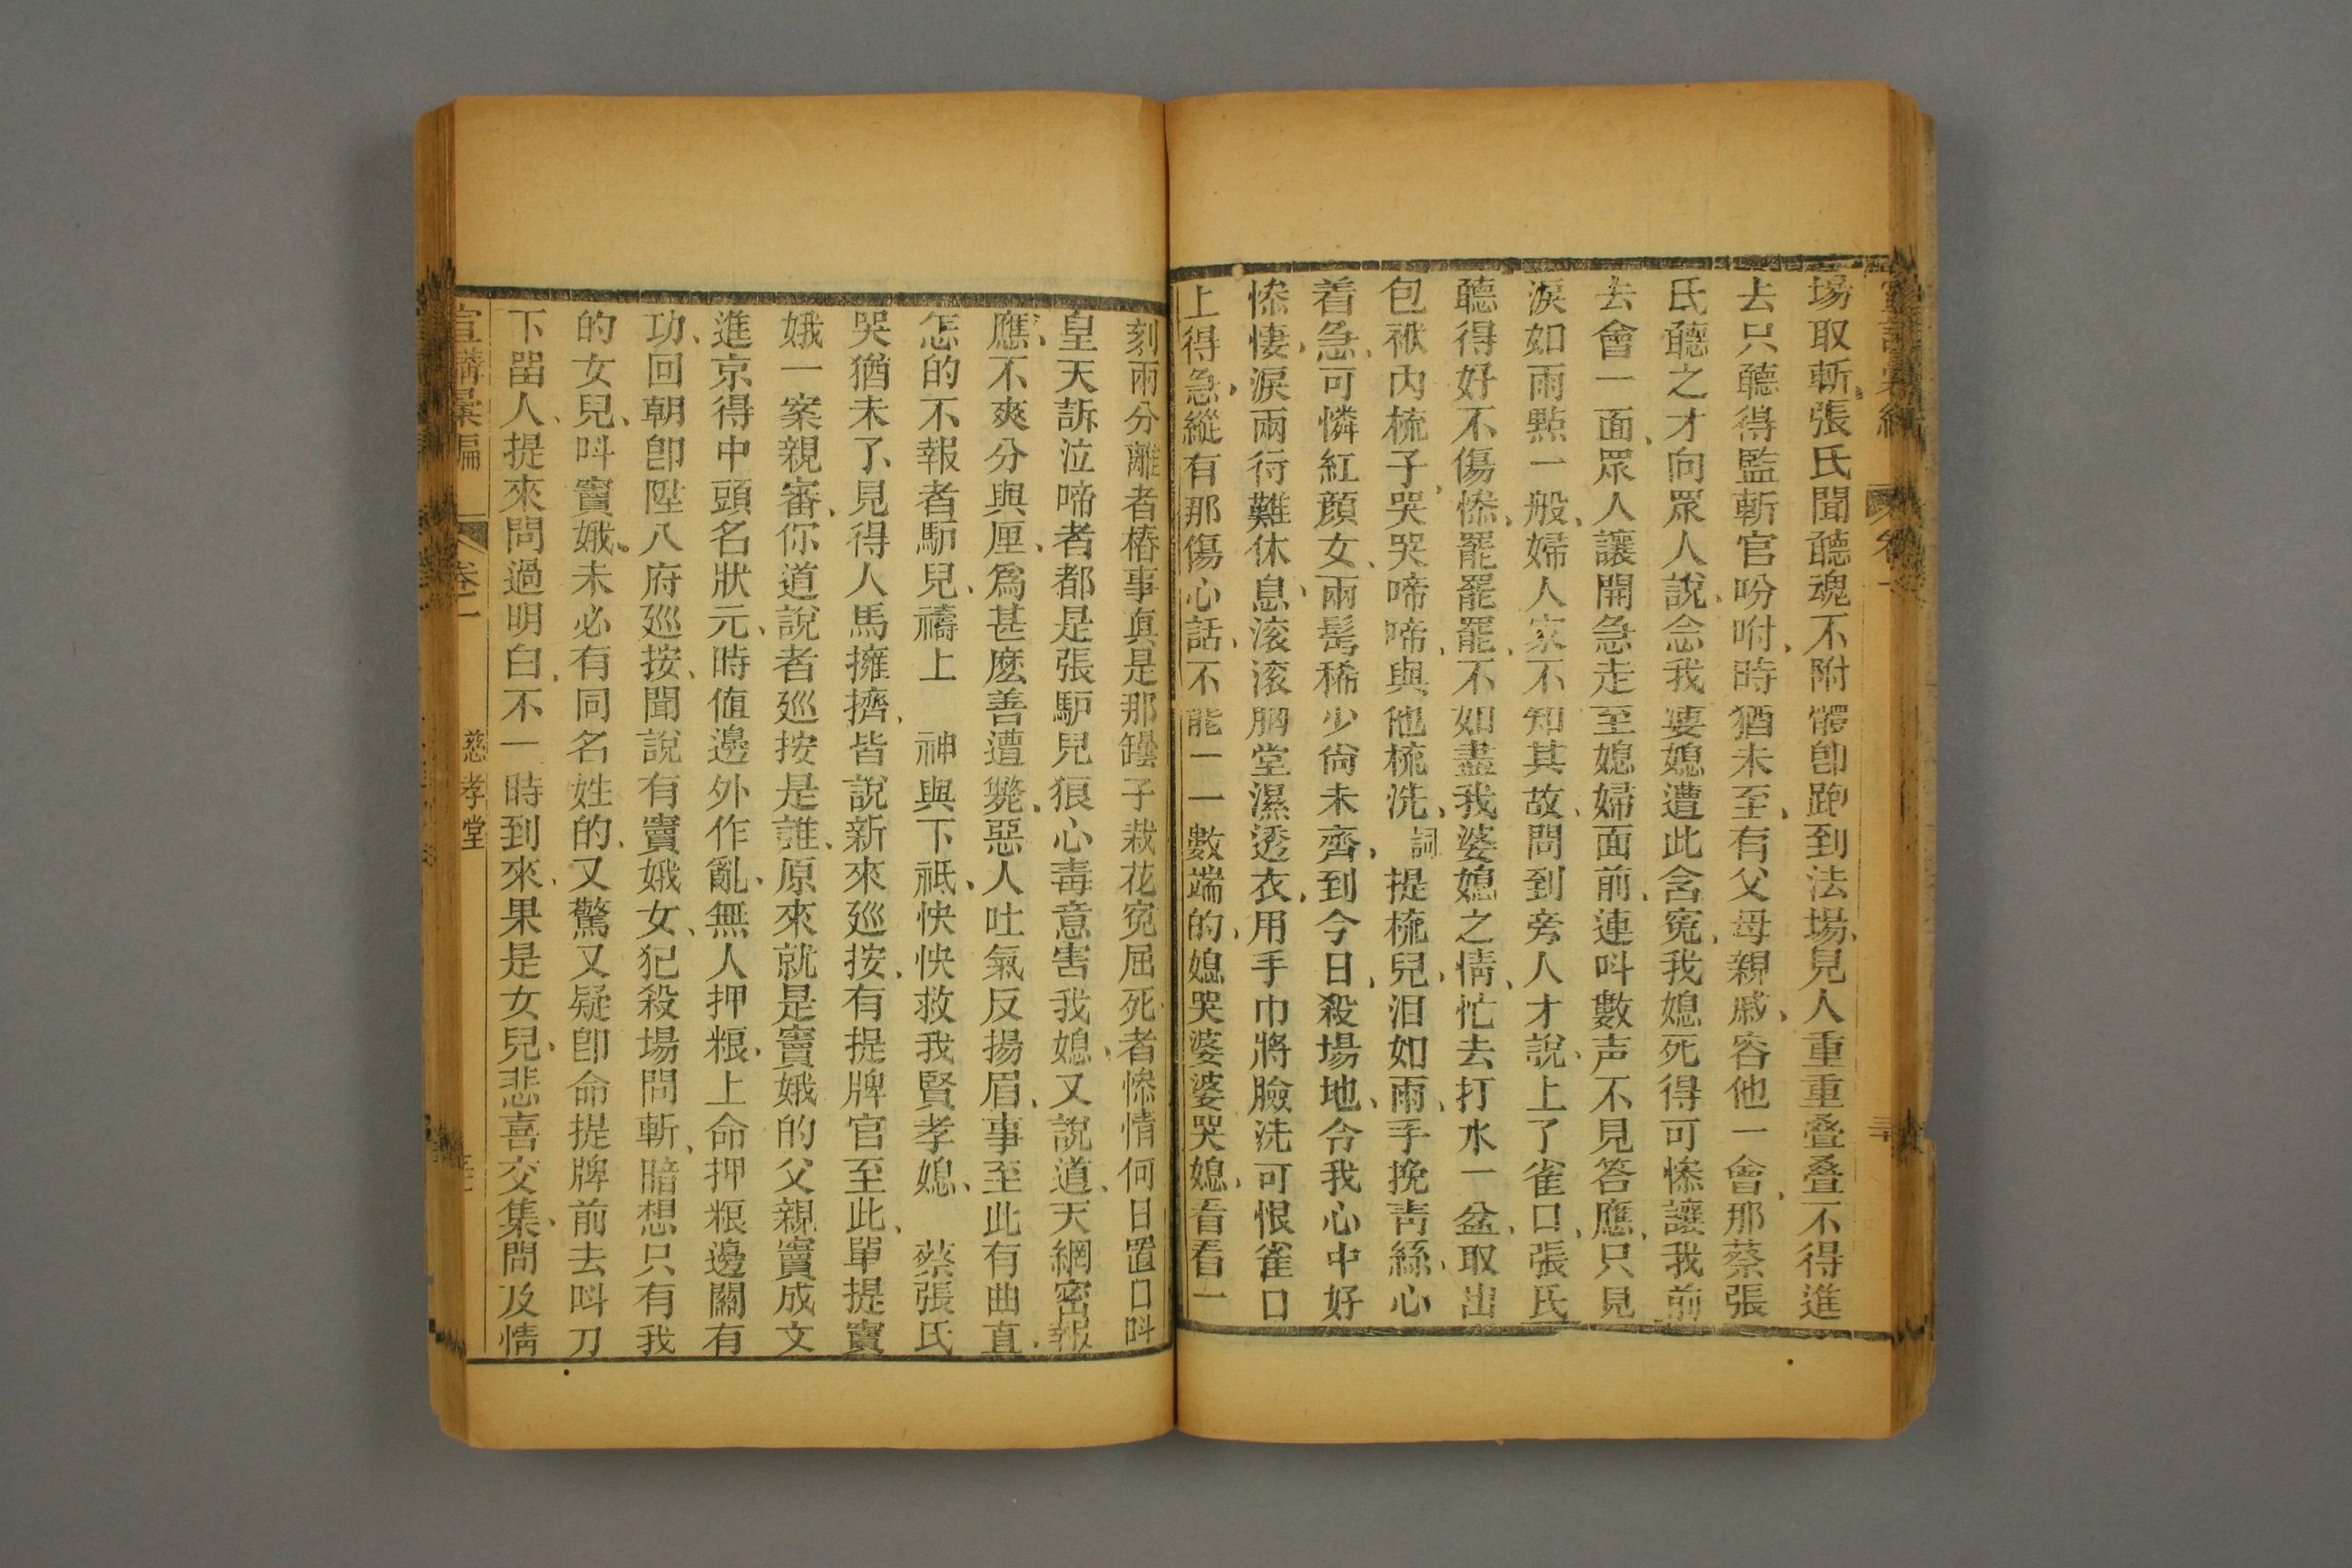 場取斬、張氏聞聽魂不附體卽跑到法場、見人重重叠叠不得進
去只聽得監斬官吩咐、時猶未至、有父母親戚、容他一會、那蔡張
氏聽之才向眾人說、念我婆媳遭此含冤、我媳死得可慘讓我前
去會一面、眾人讓開急走至媳婦面前、連呌數声不見答應、只見
淚如雨點一般、婦人家不知其故、問到旁人才說、上了雀口、張氏
聽得好不傷慘、罷罷罷、不如盡我婆媳之情、忙去打水一盆、取出
包袱內梳子、哭哭啼啼、與他梳洗、詞提梳兒、泪如雨、手挽靑絲、心
着急、可憐紅顏女、兩髩稀少尙未齊、到今日、殺場地、令我心中好
慘悽、淚兩行難休息、滚滚胸堂濕透衣、用手巾將臉洗可恨雀口
上得急、縱有那傷心話、不能一一數端的、媳哭婆婆哭媳、看看一
刻兩分離者樁事真是那罎子栽花冤屈死者慘情何日置口呌
皇天訴泣啼者都是張馿兒狠心毒意害我媳、又說道、天網密報
應、不爽分與厘、爲甚麽善遭斃、惡人吐氣反揚眉、事至此有曲直、
怎的不報者馿兒、禱上 神與下祗、快快救我賢孝媳、 蔡張氏
哭猶未了、見得人馬擁擠、皆說新來廵按、有提牌官至此、單提竇
娥一案親審、你道說者廵按是誰、原來就是竇娥的父親竇成文
進京得中頭名狀元、時值邊外作亂、無人押粮、上命押粮邊關有
功、回朝卽陞八府廵按、聞說有竇娥女、犯殺場問斬、暗想只有我
的女兒、呌竇娥、未必有同名姓的、又驚又疑卽命提牌前去呌刀
下畱人、提來問過明白、不一時到來、果是女兒、悲喜交集、問及情
宣講彙編 卷二 慈孝堂